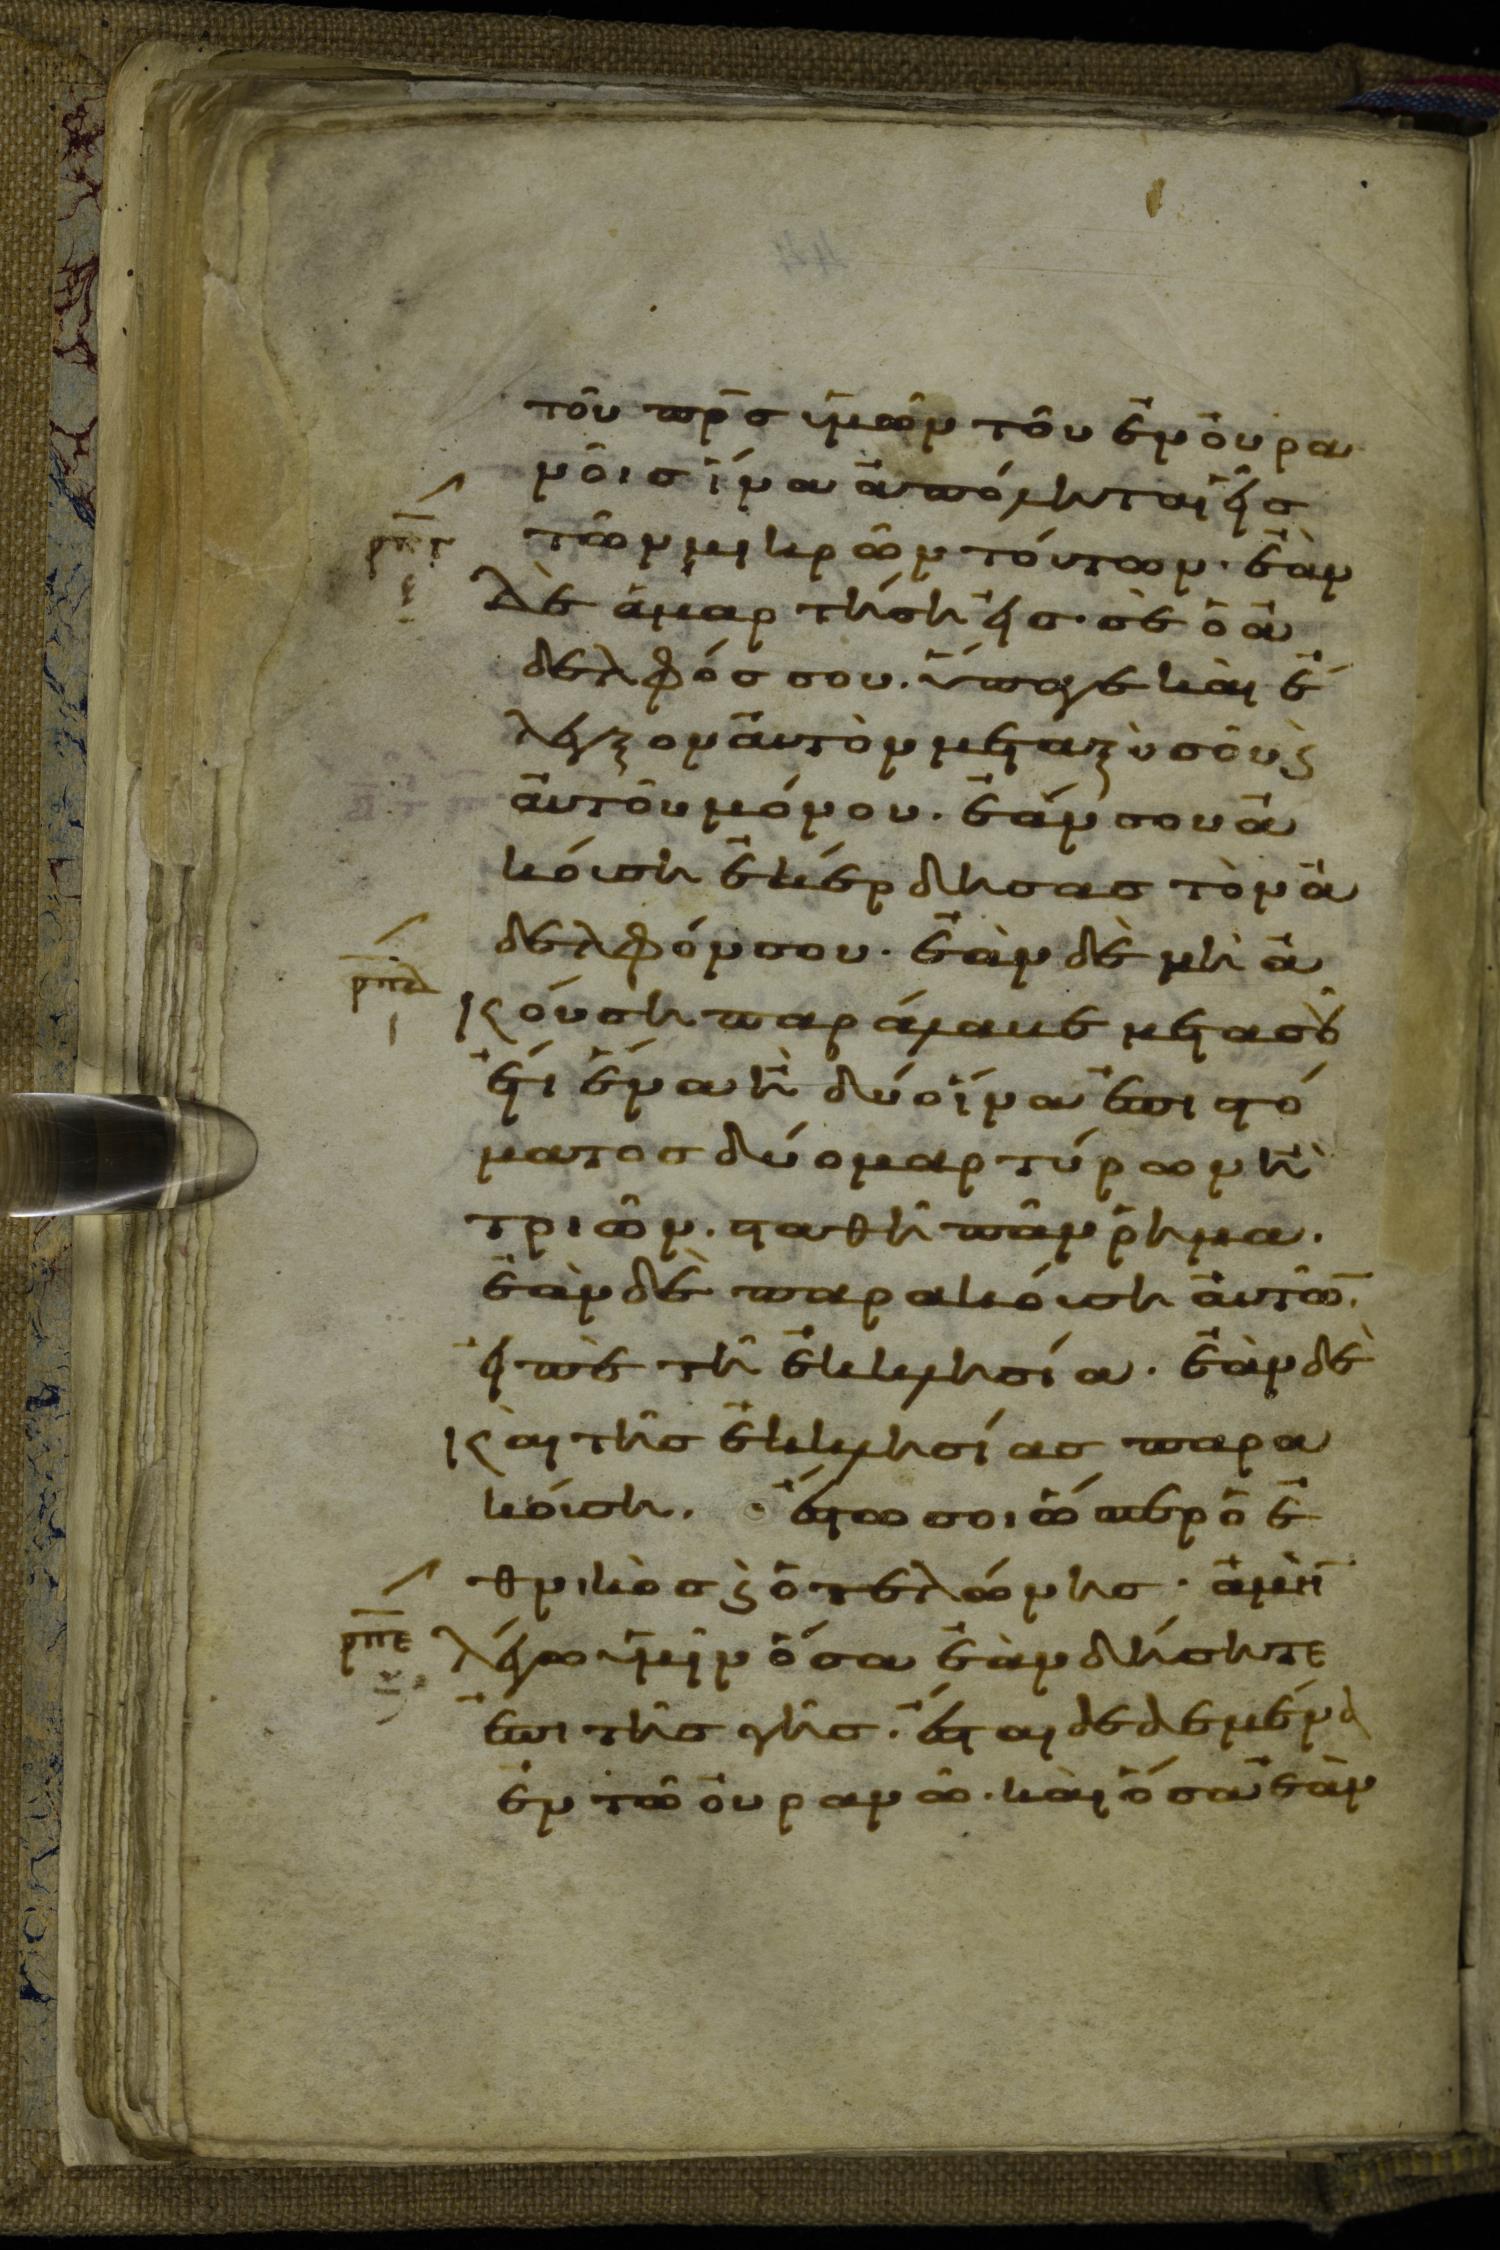 τοῦ πρ̅ς ὑμῶν τοῦ ἐν οὐρα
νοῖς ἵνα ἀπόληται εἷς
τῶν μικρῶν τούτων· ἐὰν
ρπγ
ε
δὲ ἁμαρτήσῃ εἰς σὲ ὁ ἀ
δελφός σου. ὕπαγε καὶ ἔ
λεγξον αὐτὸν μεταξὺ σοῦ ϗ
αὐτοῦ μόνου. ἐάν σου ἀ
κούσῃ ἐκέρδησας τὸν ἀ
δελφόν σου. ἐὰν δὲ μὴ ἀ
ρπδ
ι
κούσῃ παράλαβε μετὰ σοῦ
ἔτι ἕνα ἢ δύο ἵνα ἐπι στό
ματος δύο μαρτύρων ἢ
τριῶν. σταθῆ πᾶν ῥῆμα.
ἐὰν δὲ παρακούσῃ αὐτῶν.
εἰπὲ τῆ ἐκκλησία. ἐὰν δὲ
καὶ τῆς ἐκκλησίας παρα
κούσῃ. ἔστω σοι ὥσπερ ὁ ἐ
θνικὸς ϗ ὁ τελώνης· ἀμὴν
ρπε
λέγω ὑμῖν ὅσα ἐὰν δήσητε
ἐπι τῆς γῆς. ἔσται δεδεμένα
ἐν τῶ οὐρανῶ. καὶ ὅσα ἐὰν